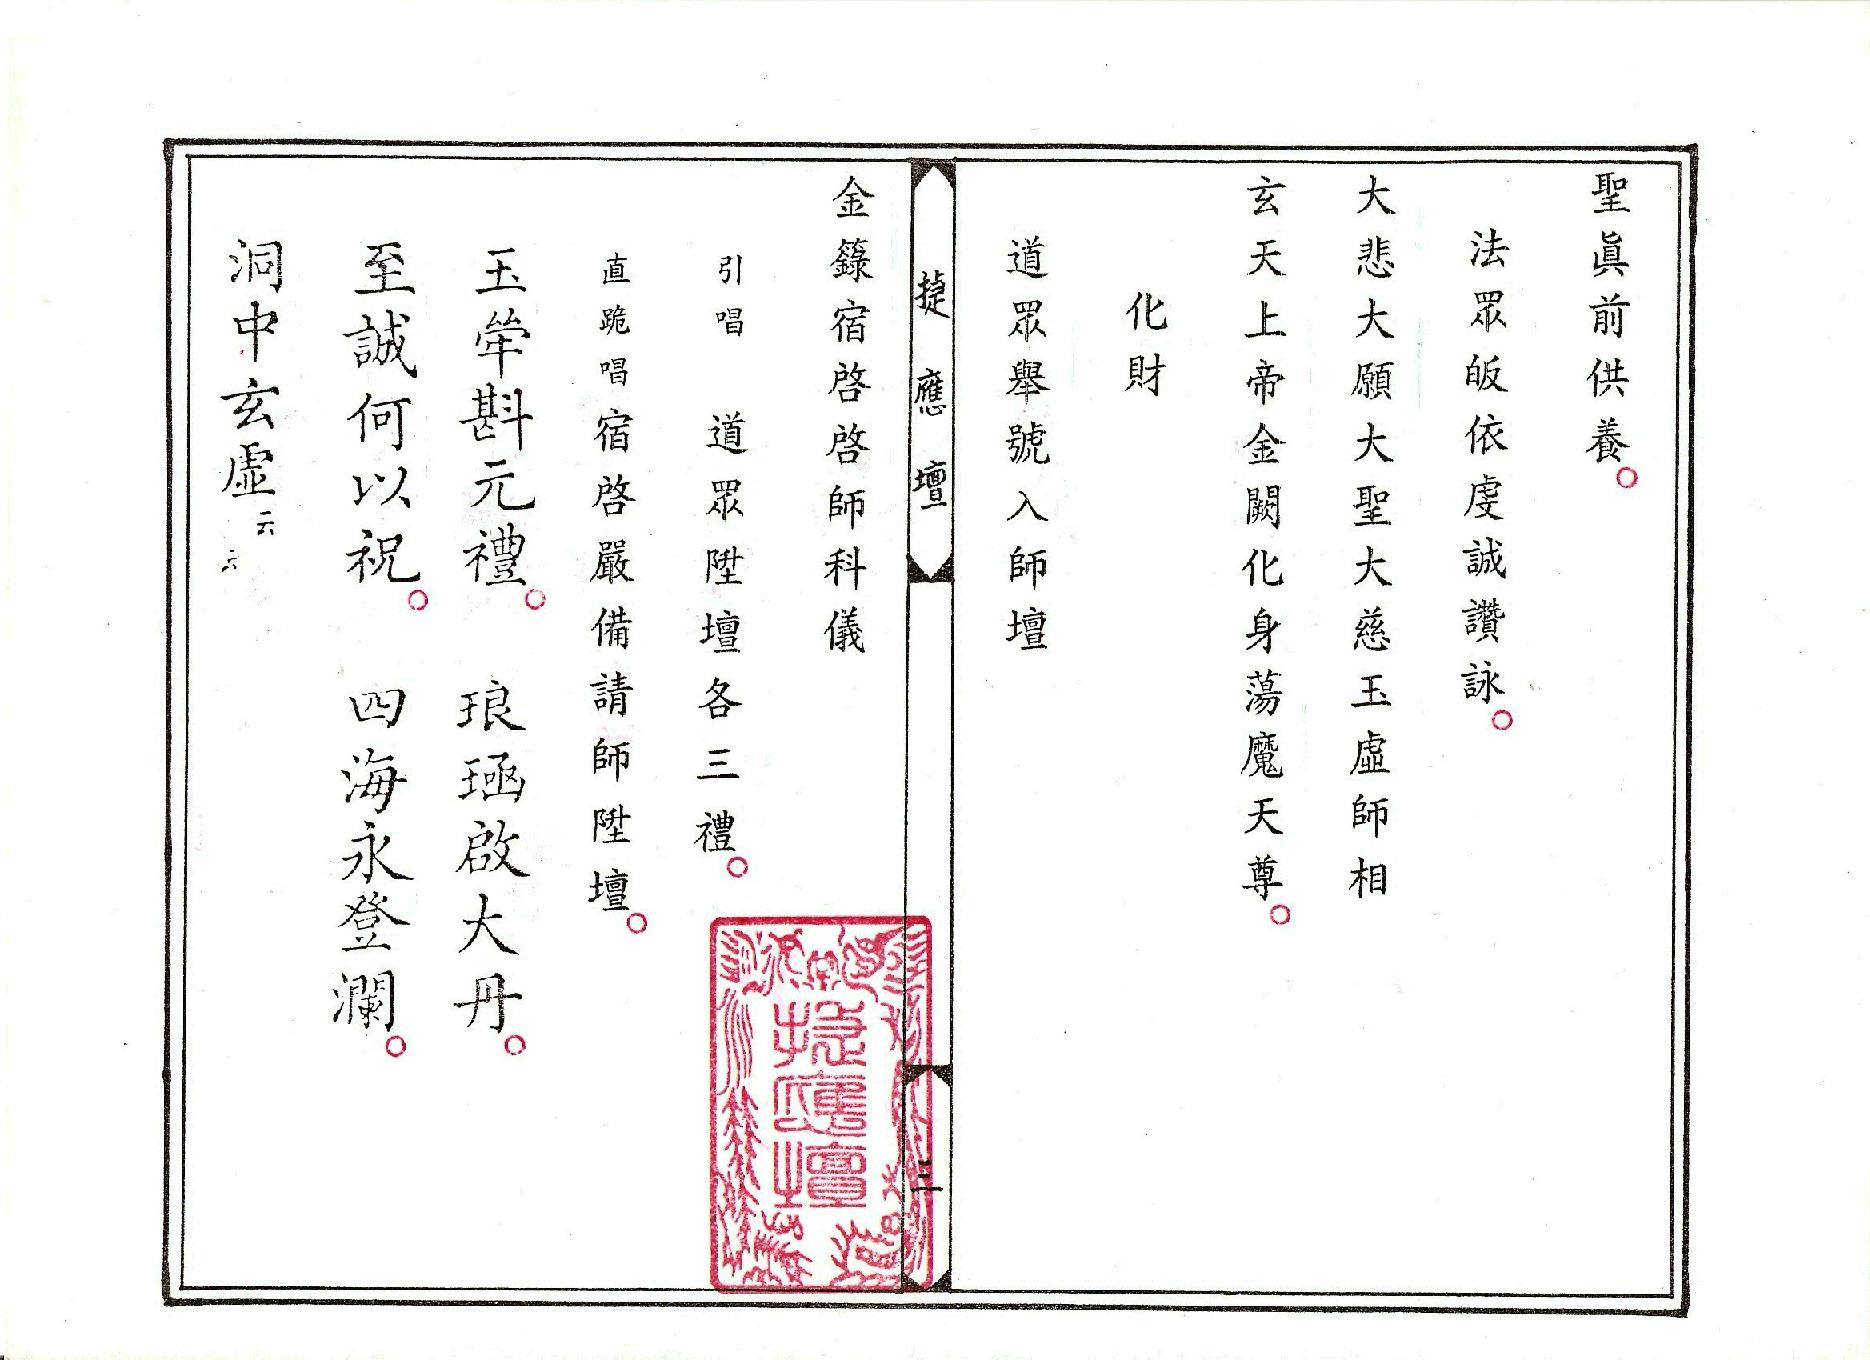 聖眞前供養○
法眾皈依虔誠讚詠○
大悲大願大聖大慈玉虛師相
玄天上帝金闕化身蕩魔天尊○
化財
道眾舉號入師壇
捷應壇
三
捷應壇
金籙宿啓啓師科儀
引唱 道眾陞壇各三禮○
直跪唱宿啓嚴備請師陞壇○
玉斝斟元禮○ 琅函啟大丹○
至誠何以祝○ 四海永登瀾○
洞中玄虛云云